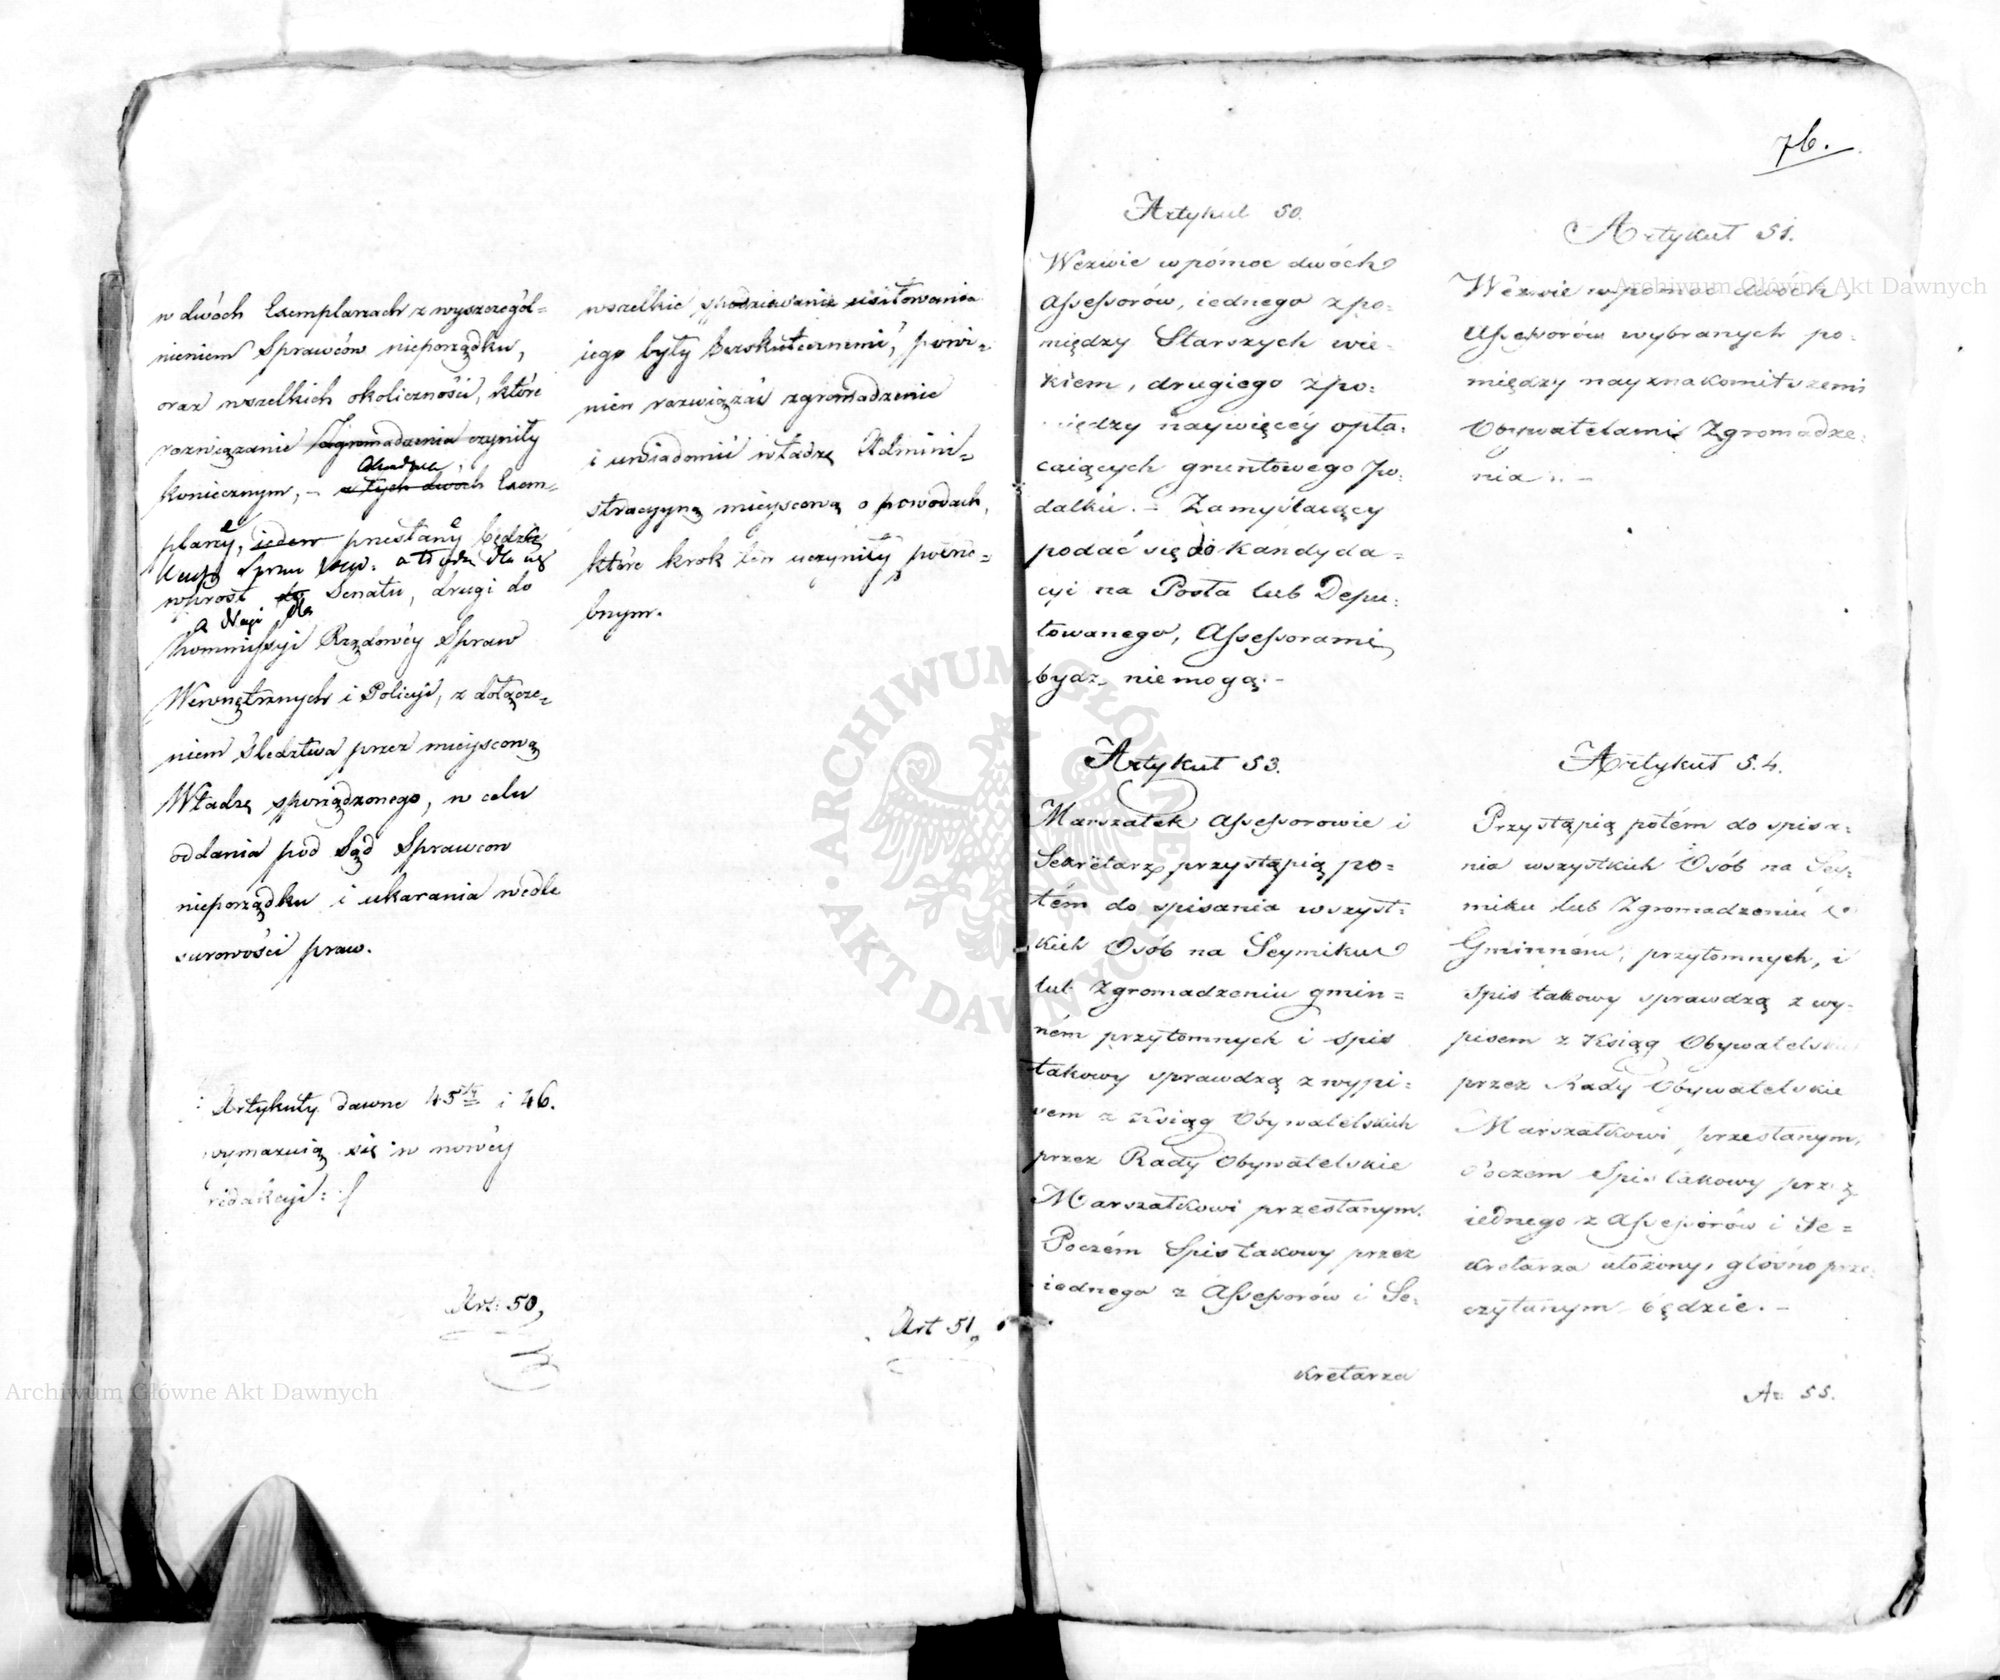 w dwóch Exemplarzach z wyszczegól=
nieniem Sprawców nieporządku,
oraz wszelkich okoliczności, które
rozwiązanie Zgromadzenia czyniły
koniecznym, – a tych dwóch Exem=
plarzy, ieden przesłany będzie
wprost do Senatu, drugi do
a
dla
Kommissyi Rządowéy Spraw
Wewnętrznych i Policyi, z dołącze=
niem śledztwa przez mieyscową
Władzę sporządzonego, w celu
oddania pod Sąd Sprawców
nieporządku i ukarania wedle
surowości praw.
Artykuły dawne 45ty i 46.
wymazuią się w nowéy
redakcyi :/
Art: 50,
wszelkie spodziewanie usiłowania
iego były bezskutecznemi, powi=
nien rozwiązać zgromadzenie
i uwiadomić władzę Admini=
stracyyną mieyscową o powodach,
które krok ten uczyniły potrze=
bnym.
Art 51,
76.
Artykuł 50.
Wezwie w pómoc dwóch
Assessorów, iednego z po=
między Starszych wie=
kiem, drugiego z po=
między naywięcéy opła=
caiących gruntowego Po=
datku. – Zamyślaiący
podać się do Kandyda=
cyi na Posła lub Depu=
towanego, Assessorami
bydź, nie mogą. –
Artykuł 53.
Marszałek Assessorowie i
Sekretarz przystąpią po=
tém do spisania wszyst=
kich Osób na Seymiku
lub Zgromadzeniu gmin=
ném przytomnych i spis
takowy sprawdzą z wypi=
sem z Ksiąg Obywatelskich
przez Rady Obywatelskie
Marszałkowi przesłanym.
Poczém Spis takowy przez
iednego z Assessorów i Se=
kretarza
Artykuł 51.
Wezwie w pomoc dwóch,
Assessorów wybranych po=
między nayznakomitszemi
Obywatelami Zgromadze=
nia. –
Artykuł 54.
Przystąpią potém do spisa=
nia wszystkich Osób na Sey=
miku lub Zgromadzeniu
Gminném, przytomnych, i
spis takowy sprawdzą z wy=
pisem z Ksiąg Obywatelskich
przez Rady Obywatelskie
Marszałkowi przesłanym,
Poczem Spis takowy przez
iednego z Assessorów i Se=
kretarza ułożony, głośno prze=
czytanym będzie. –
Ar: 55.
ARCHIWUM GŁÓWNE AKT DAWNYCH
Archiwum Główne Akt Dawnych
Archiwum Główne Akt Dawnych